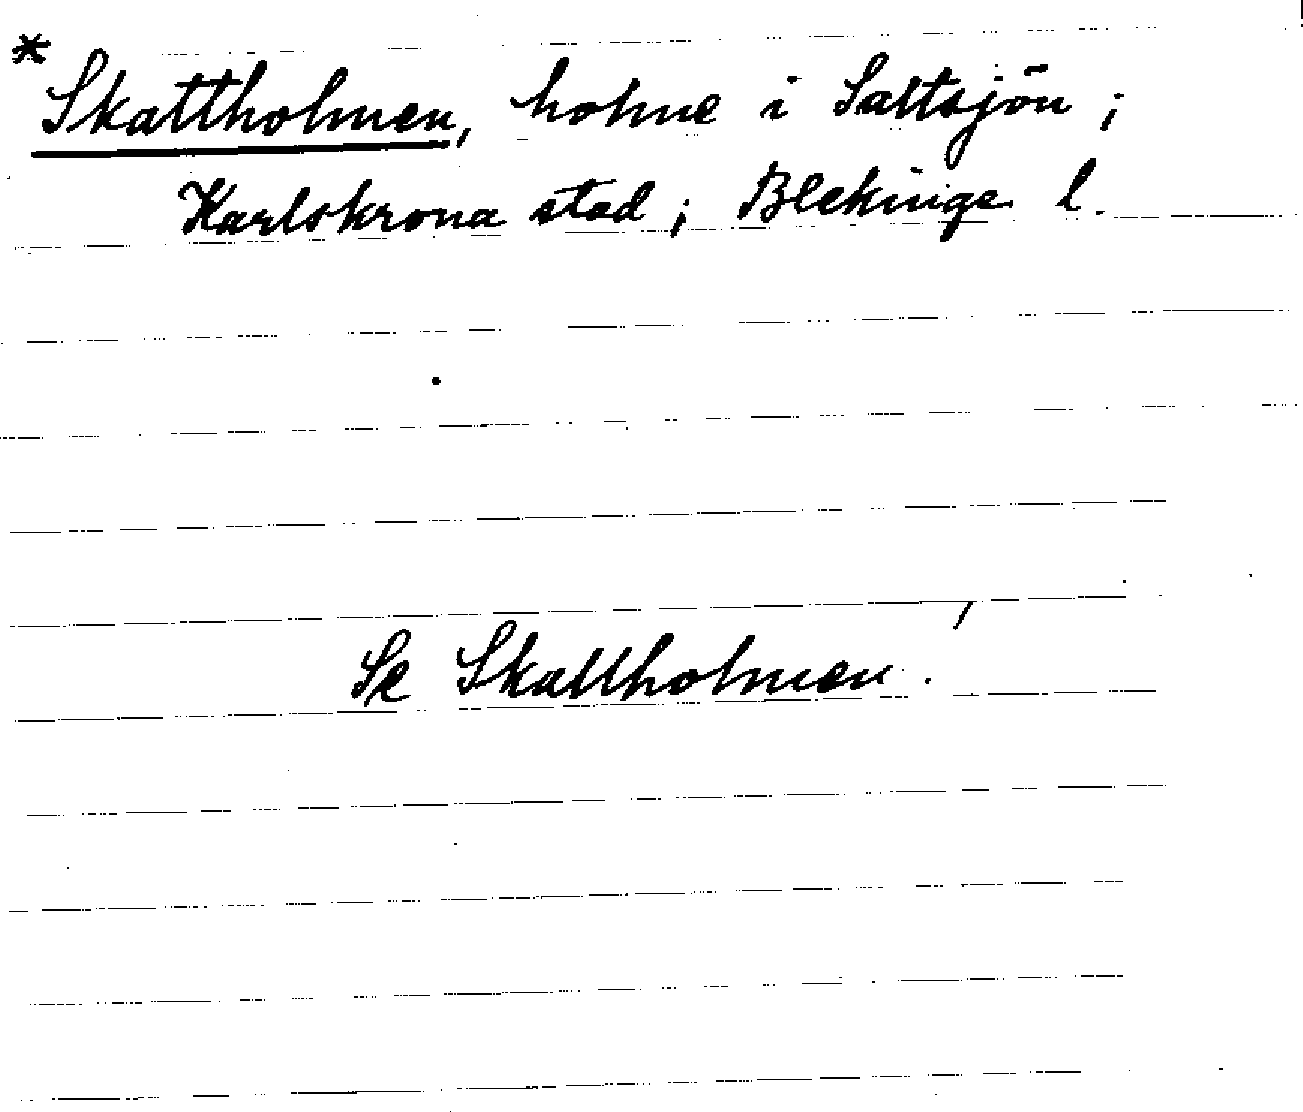 * Skattholmen, holme i Saltsjön ;
Karlskrona stad ; Blekinge l.
Se Skallholmen.